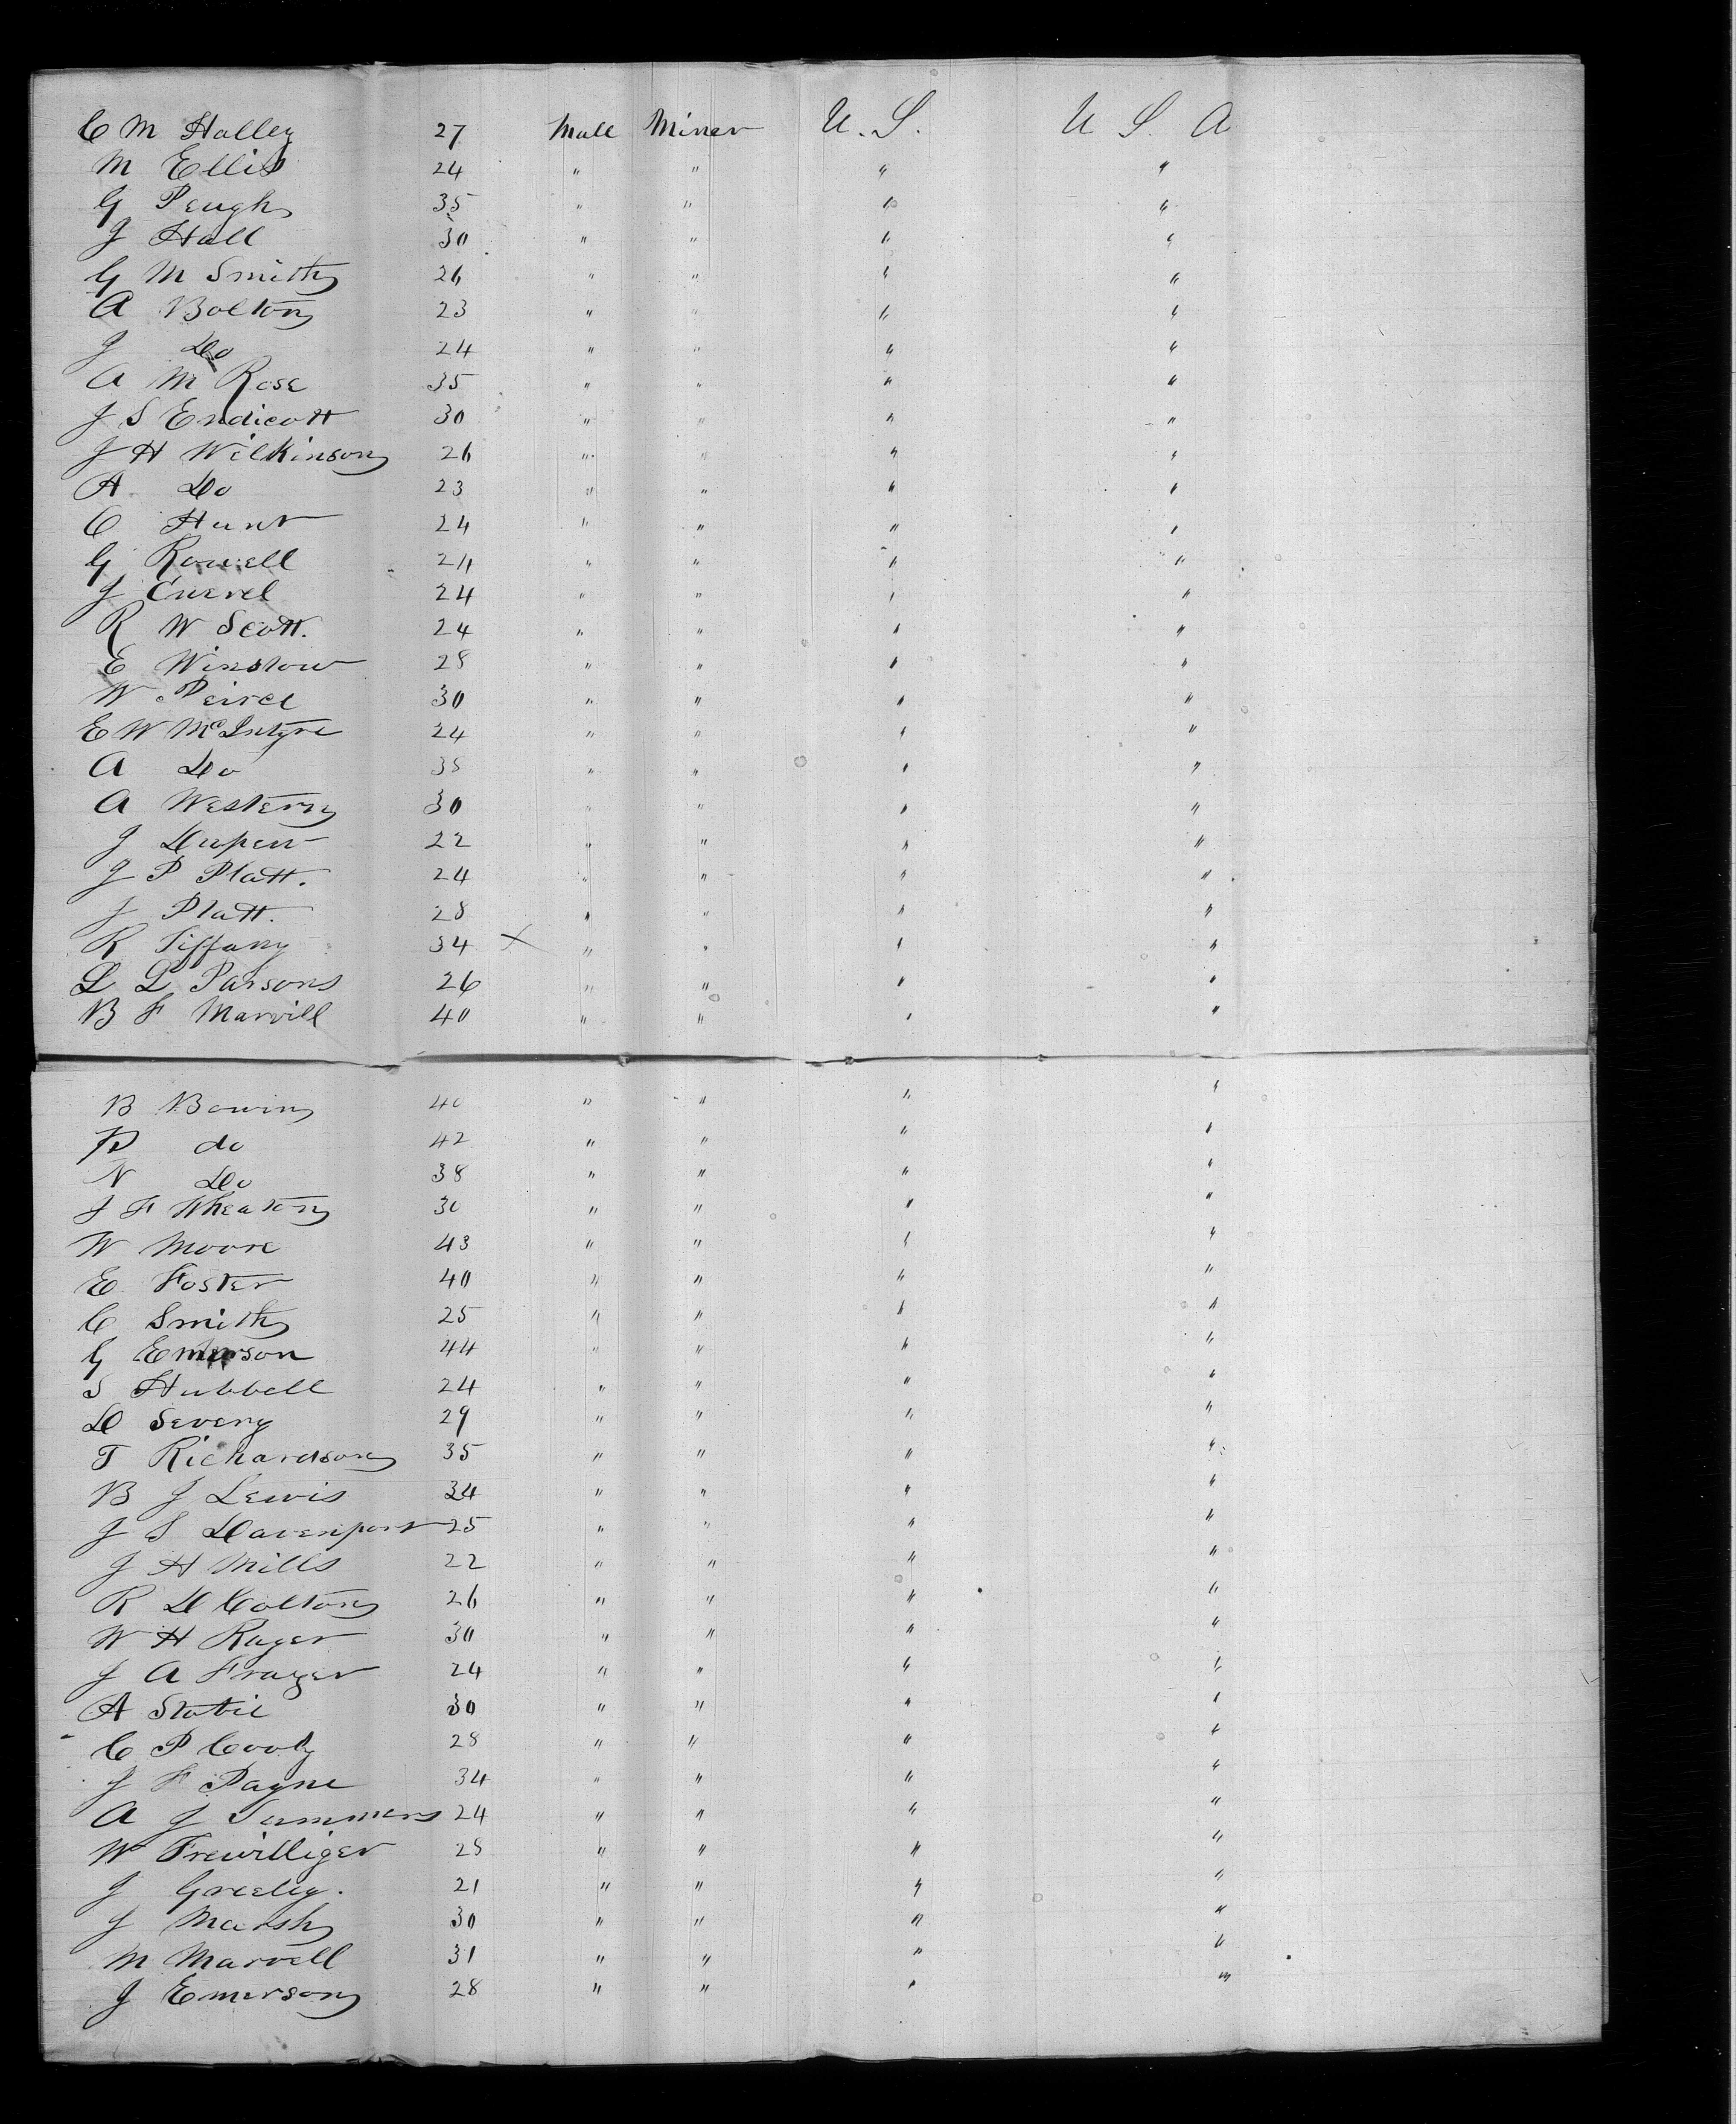 C M Halley 27 Male Miner U. S. U S. A
M Ellis 24 " " " "
G Peugh 35 " " " "
J Hall 30 " " " "
G M Smith 26 " " " "
A Bolton 23 " " " "
J Do 24 " " " "
A M Rose 35 " " " "
J S Endicott 30 " " " "
J H Wilkinson 26 " " " "
A Do 23 " " " "
C Hunt 24 " " " "
G Rowell 24 " " " "
J 24 " " " "
R W Scott. 24 " " " "
E Winslow 28 " " " "
W Peirce 30 " " " "
E W McIntyre 24 " " " "
A Do 35 " " " "
A Western 30 " " " "
J Dupen 22 " " " "
J P Platt. 24 " " " "
J Platt. 28 " " " "
R Tiffany 34 X " " " "
L L Parsons 26 " " " "
B F Marvill 40 " " " "
B Bowin 40 " " " "
P do 42 " " " "
N Do 38 " " " "
J F Wheaton 30 " " " "
W Moore 43 " " " "
E Foster 40 " " " "
C Smith 25 " " " "
G Emerson 44 " " " "
S Hubbell 24 " " " "
D Seveny 29 " " " "
T Richardson 35 " " " "
B J Lewis 34 " " " "
J S Davenport 25 " " " "
J H Mills 22 " " " "
R D Colton 26 " " " "
W H Rager 30 " " " "
J A Frazer 24 " " " "
A 30 " " " "
C P Cooly 28 " " " "
J F Payne 34 " " " "
A J Summers 24 " " " "
W Frewilliger 28 " " " "
J Greeley. 21 " " " "
J Marsh 30 " " " "
M Marvell 31 " " " "
J Emerson 28 " " " "